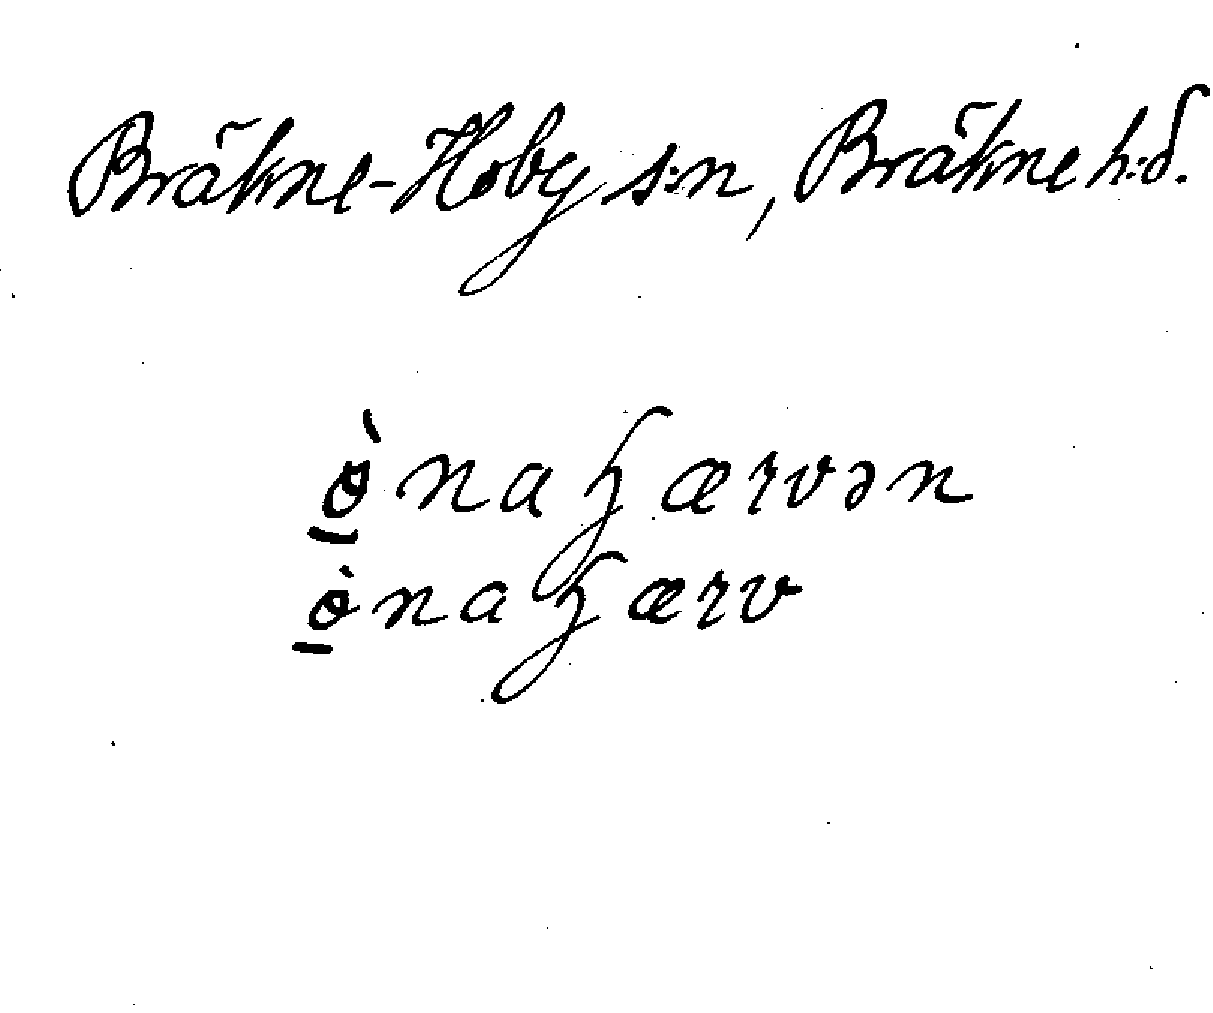 Bräkne-Hoby s:n, Bräkne h:d.
ø̱̀naɧærvən
ø̱̀naɧærv